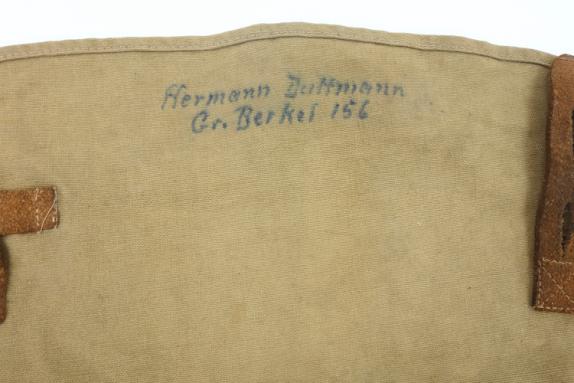 Hermann Duttmann
Gr. Berkel 156